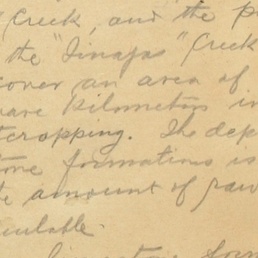 Creek, and the p
the "Sinaja" Creek
cover an area of
uare Kilometers in
tcropping. The dep
tone formations is
e amount of raw
culable.